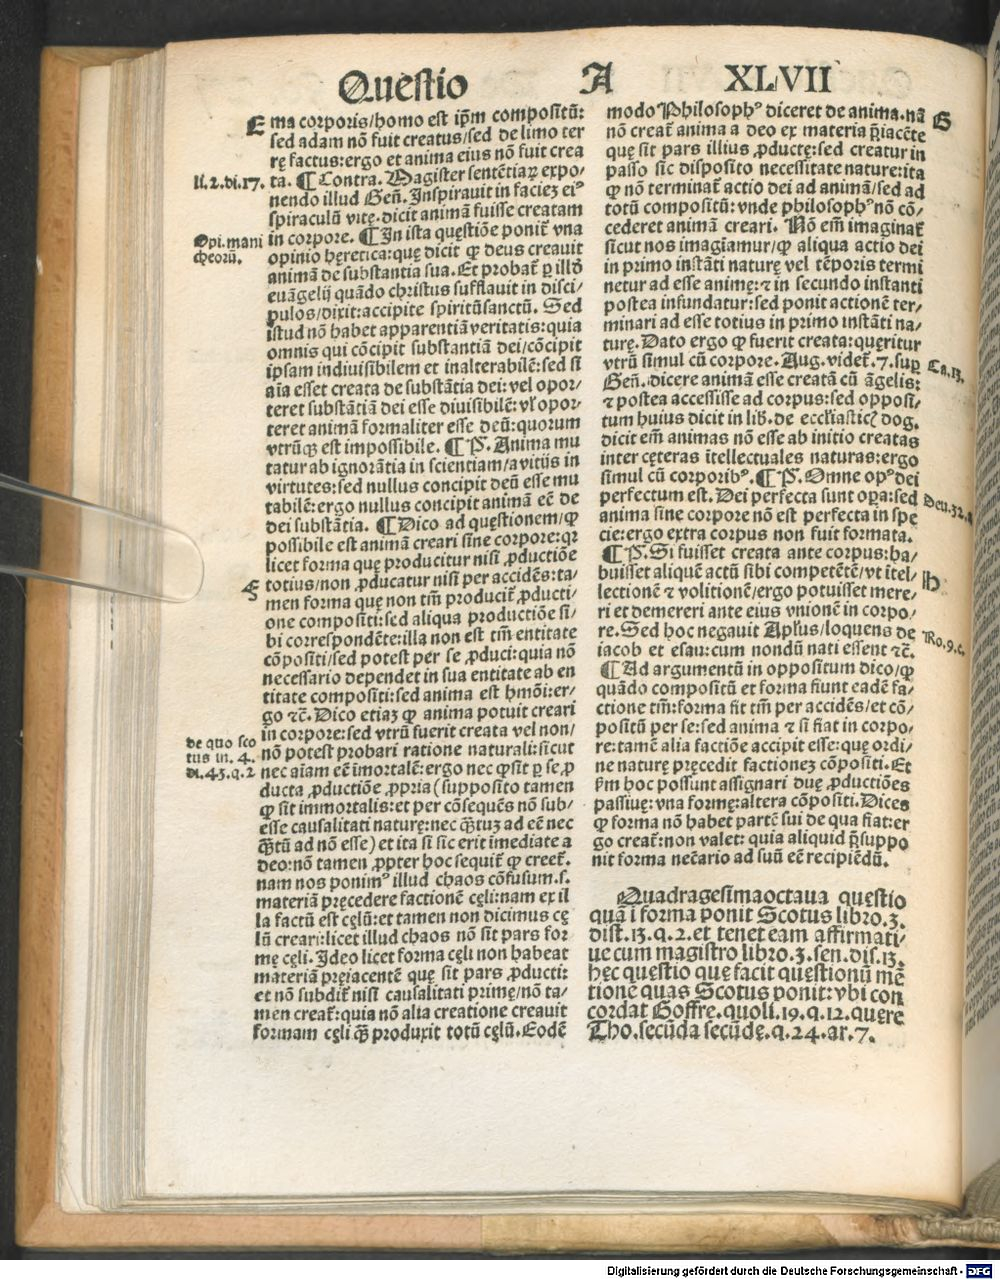 Questio A XLVII
E
ma corporis/homo est ip̄m compositū:
sed adam nō fuit creatus/sed de limo ter
rę factus:ergo et anima eius nō fuit crea
li.2.di.17.
ta. ¶ Contra. Magister sentētiaꝝ expo/
nendo illud Geñ. Inspirauit in facieʒ eiꝰ
spiraculū vitę.dicit animā fuisse creatam
Opi.mani
cheorū.
in corpore. ¶ In ista questiōe ponit̄ vna
opinio hęretica:quę dicit ꝙ deus creauit
animā de substantia sua. Et probat̄ ꝑ illd̄
euāgelij quādo christus sufflauit in disci/
pulos/dixit:accipite spiritūsanctū. Sed
istud nō habet apparentiā veritatis:quia
omnis qui cōcipit substantiā dei/cōcipit
ipsam indiuisibilem et inalterabilē:sed si
aīa esset creata de substātia dei: vel opor/
teret substātiā dei esse diuisibilē: vl̓ opor/
teret animā formaliter esse deū:quorum
vtrūqꝫ est impossibile. ¶ P̱. Anima mu
tatur ab ignorātia in scientiam/a vitijs in
virtutes:sed nullus concipit deū esse mu
tabilē:ergo nullus concipit animā eē de
dei substātia. ¶ Dico ad questionem/ꝙ
possibile est animā creari sine corpore:qꝛ
licet forma quę producitur nisi ꝓductiōe
F
totius/non ꝓducatur nisi per accidēs:ta/
men forma quę non tm̄ producit̄ ꝓducti/
one compositi:sed aliqua productiōe si/
bi correspondēte:illa non est tm̄ entitate
cōpositi/sed potest per se ꝓduci:quia nō
necessario dependet in sua entitate ab en
titate compositi:sed anima est hmōi:er/
go ⁊c̄. Dico etiaʒ ꝙ anima potuit creari
de quo sco
tus in. 4.
di.43.q.2
in corpore:sed vtrū fuerit creata vel non/
nō potest probari ratione naturali:sicut
nec aīam eē īmortalē:ergo nec ꝙ sit ꝑ se ꝓ
ducta ꝓductiōe ꝓpria (supposito tamen
ꝙ sit immortalis:et per cōsequēs nō sub/
esse causalitati naturę:nec q̄ʒtuʒ ad eē nec
q̄ʒtū ad nō esse) et ita si sic erit īmediate a
deo:nō tamen ꝓpter hoc sequit̄ ꝙ creet̄.
nam nos ponimꝰ illud chaos cōfusum.s.
materiā pręcedere factionē cęli:nam ex il
la factū est cęlū:et tamen non dicimus cę
lū creari:licet illud chaos nō sit pars for/
mę cęli. Ideo licet forma cęli non habeat
materiā pręiacentē quę sit pars ꝓducti:
et nō subdit̄ nisi causalitati primę/nō ta/
men creat̄:quia nō alia creatione creauit
formam cęli q̄ʒ produxit totū cęlū. Eodē
modo Philosophꝰ diceret de anima.nā
G
nō creat̄ anima a deo ex materia p̄iacēte
quę sit pars illius ꝓductę:sed creatur in
passo sic disposito necessitate naturę:ita
ꝙ nō terminat̄ actio dei ad animā/sed ad
totū compositū: vnde philosophꝰ nō cō/
cederet animā creari. Nō em̄ imaginat̄
sicut nos imagīamur/ꝙ aliqua actio dei
in primo instāti naturę vel tēporis termi
netur ad esse animę:⁊ in secundo instanti
postea infundatur:sed ponit actionē ter/
minari ad esse totius in primo instāti na/
turę. Dato ergo ꝙ fuerit creata:queritur
vtrū simul cū corpore. Aug. videt̄. 7. suꝑ
Ca.13.
Geñ. dicere animā esse creatā cū āgelis:
⁊ postea accessisse ad corpus:sed opposi/
tum huius dicit in lib̄. de eccl̓iasticꝭ dog.
dicit em̄ animas nō esse ab initio creatas
inter cęteras ītellectuales naturas:ergo
simul cū corporibꝰ. ¶ P̱. Omne opꝰ dei
perfectum est. Dei perfecta sunt oꝑa:sed
Deu.32.a
anima sine corpore nō est perfecta in spe
cie:ergo extra corpus non fuit formata.
¶ P̱. Si fuisset creata ante corpus:ha/
H
buisset aliquē actū sibi competētē/vt ītel/
lectionē ⁊ volitionē/ergo potuisset mere/
ri et demereri ante eius vnionē in corpo/
re. Sed hoc negauit Apl̓us/loquens de
Ro.9.c.
iacob et esau:cum nondū nati essent ⁊c̄.
¶ Ad argumentū in oppositum dico/ꝙ
quādo compositū et forma fiunt eadē fa/
ctione tm̄:forma fit tm̄ per accidēs/et cō/
positū per se:sed anima ⁊ si fiat in corpo/
re:tamē alia factiōe accipit esse:quę ordi/
ne naturę pręcedit factioneʒ cōpositi. Et
ẜm hoc possunt assignari duę ꝓductiōes
passiuę: vna formę:altera cōpositi. Dices
ꝙ forma nō habet partē sui de qua fiat:er
go creat̄:non valet: quia aliquid p̄suppo
nit forma nec̄ario ad suū eē recipiēdū.
Quadragesimaoctaua questio
quā i forma ponit Scotus libro.3.
dist.13.q.2.et tenet eam affirmati/
ue cum magistro libro.3.sen.dis.13.
hęc questio quę facit questionū mē
tionē quas Scotus ponit: vbi con
cordat Goffre.quoli.19.q.12.quere
Tho.secūda secūdę.q.24.ar.7.
Digitalisierung gefördert durch die Deutsche Forschungsgemeinschaft - DFG